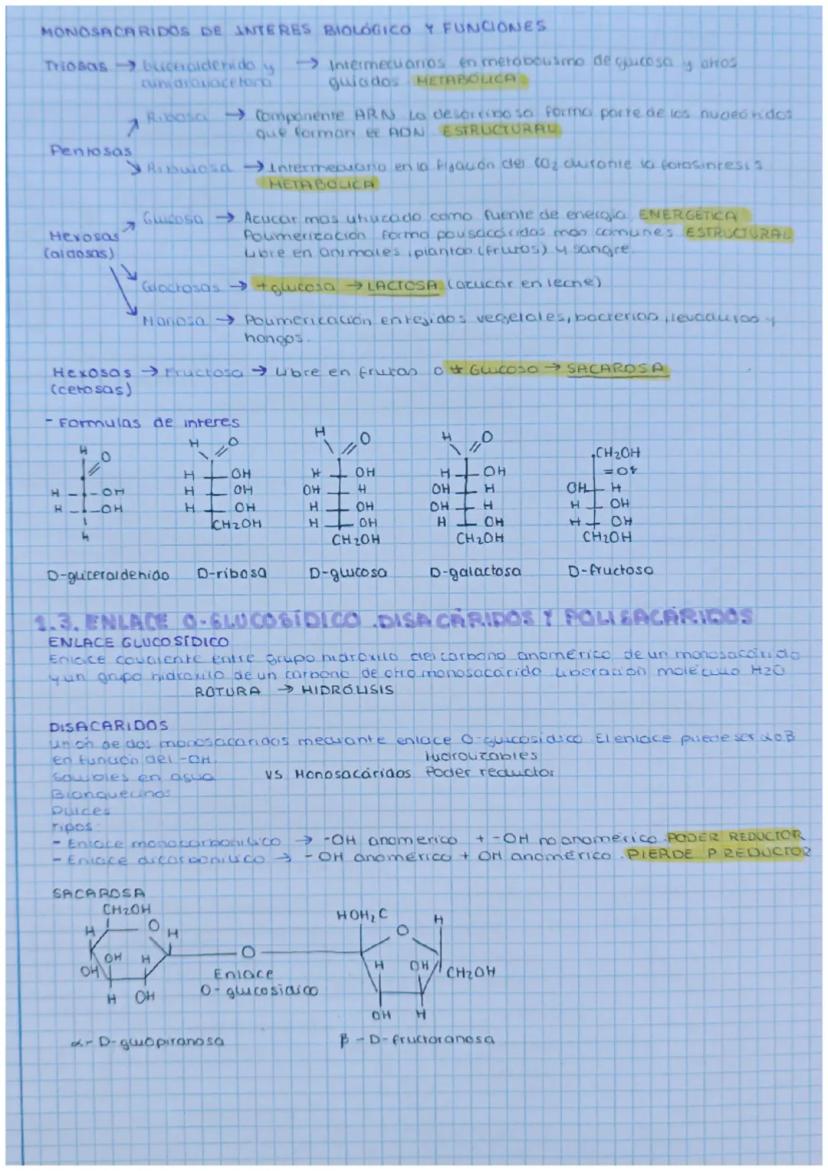 MONOSACARIDOS DE INTERES BIOLÓGICO Y FUNCIONES
Triosas → y → Intermeduarios en metabolismo de glucosa y otros
guiados METABÓLICA
Ribosa → Componente ARN La desoxirribosa forma parte de los nucleótidos
que forman el ADN ESTRUCTURAL
Pentosas
Ribulosa → Intermeduario en la fijación del CO2 durante la fotosíntesis
METABÓLICA
Glucosa → Azucar mas utilizado como fuente de energía ENERGÉTICA
Hexosas
Polimerización forma polisacáridos más comunes ESTRUCTURAL
(aldosas)
Libre en animales, plantas (frutos) y sangre.
Galactosas → + glucosa → LACTOSA (azucar en leche)
Manosa → Polimericación en tejidos vegetales, bacterias, levaduras y
hongos.
Hexosas → Fructosa → Libre en frutas o + Glucosa → SACAROSA
(cetosas)
- Formulas de interes
H O H O H O H O CH2OH
H OH H OH H OH H OH =O
H OH H OH OH H OH H OH H
H H OH H OH OH H H OH
CH2OH H OH H OH H OH
CH2OH CH2OH CH2OH
D-gliceraldehido D-ribosa D-glucosa D-galactosa D-fructosa
1.3. ENLACE O-GLUCOSÍDICO. DISACÁRIDOS Y POLISACÁRIDOS
ENLACE GLUCOSÍDICO
Enlace covalente entre grupo hidroxilo del carbono anomérico de un monosacárido
y un grupo hidroxilo de un carbono de otro monosacárido liberación molécula H2O
ROTURA → HIDRÓLISIS
DISACARIDOS
Unión de dos monosacaridos mediante enlace O-glucosidico El enlace puede ser α o β
en función del -OH. Hidrolizables
Solubles en agua VS Monosacáridos Poder reductor
Blanquecinos
Dulces
Tipos:
- Enlace monocarbonilico → -OH anomerico + -OH no anomérico PODER REDUCTOR
- Enlace dicarbonilico → -OH anomérico + OH anomérico. PIERDE P REDUCTOR
SACAROSA
CH2OH HOH2C H
H O H O
OH H O H OH CH2OH
OH Enlace
H OH O-glucosidico
OH H
α-D-glucopiranosa β-D-fructoranosa